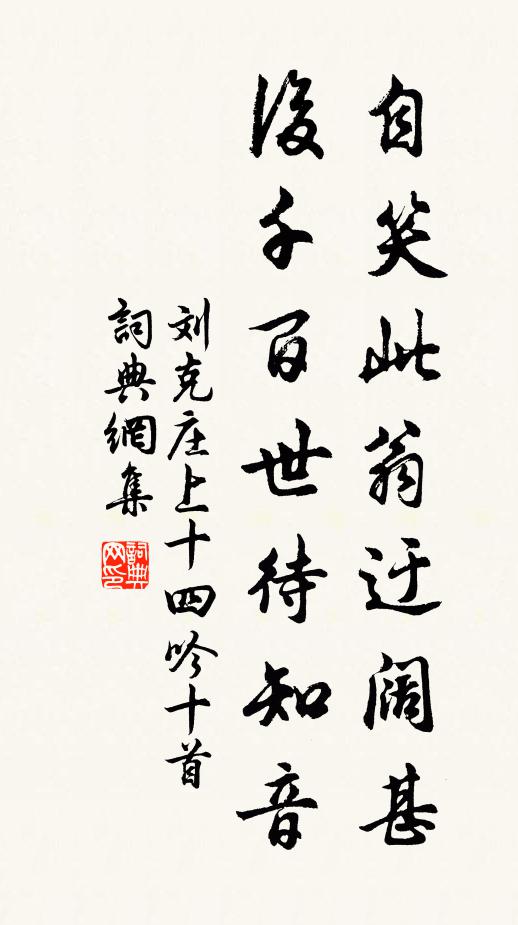 自笑此翁迂阔甚
後千百世待知音
刘克庄上十四吟十首
詞典網集
詞典网印